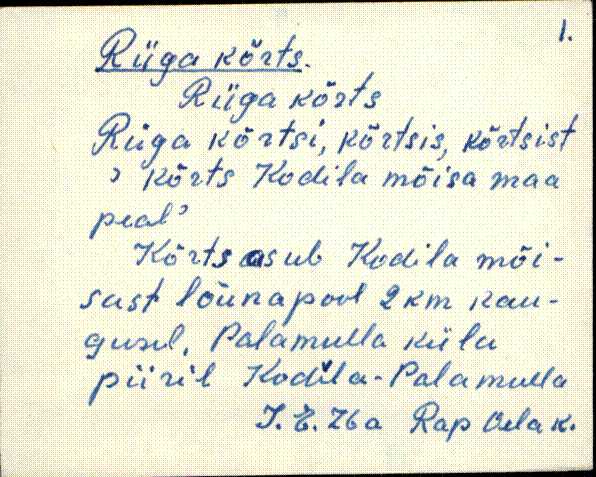 1.
Rüga kõrts.
Rüga kõrts
Rüga kõrtsi, kõrtsis, kõrtsist
› kõrts Kodila mõisa maa
peal›
Kõrts asub Kodila mõi-
sast lõunapool 2 km kau-
gusel, Palamulla küla
piiril Kodila-Palamulla
76a Rap k.